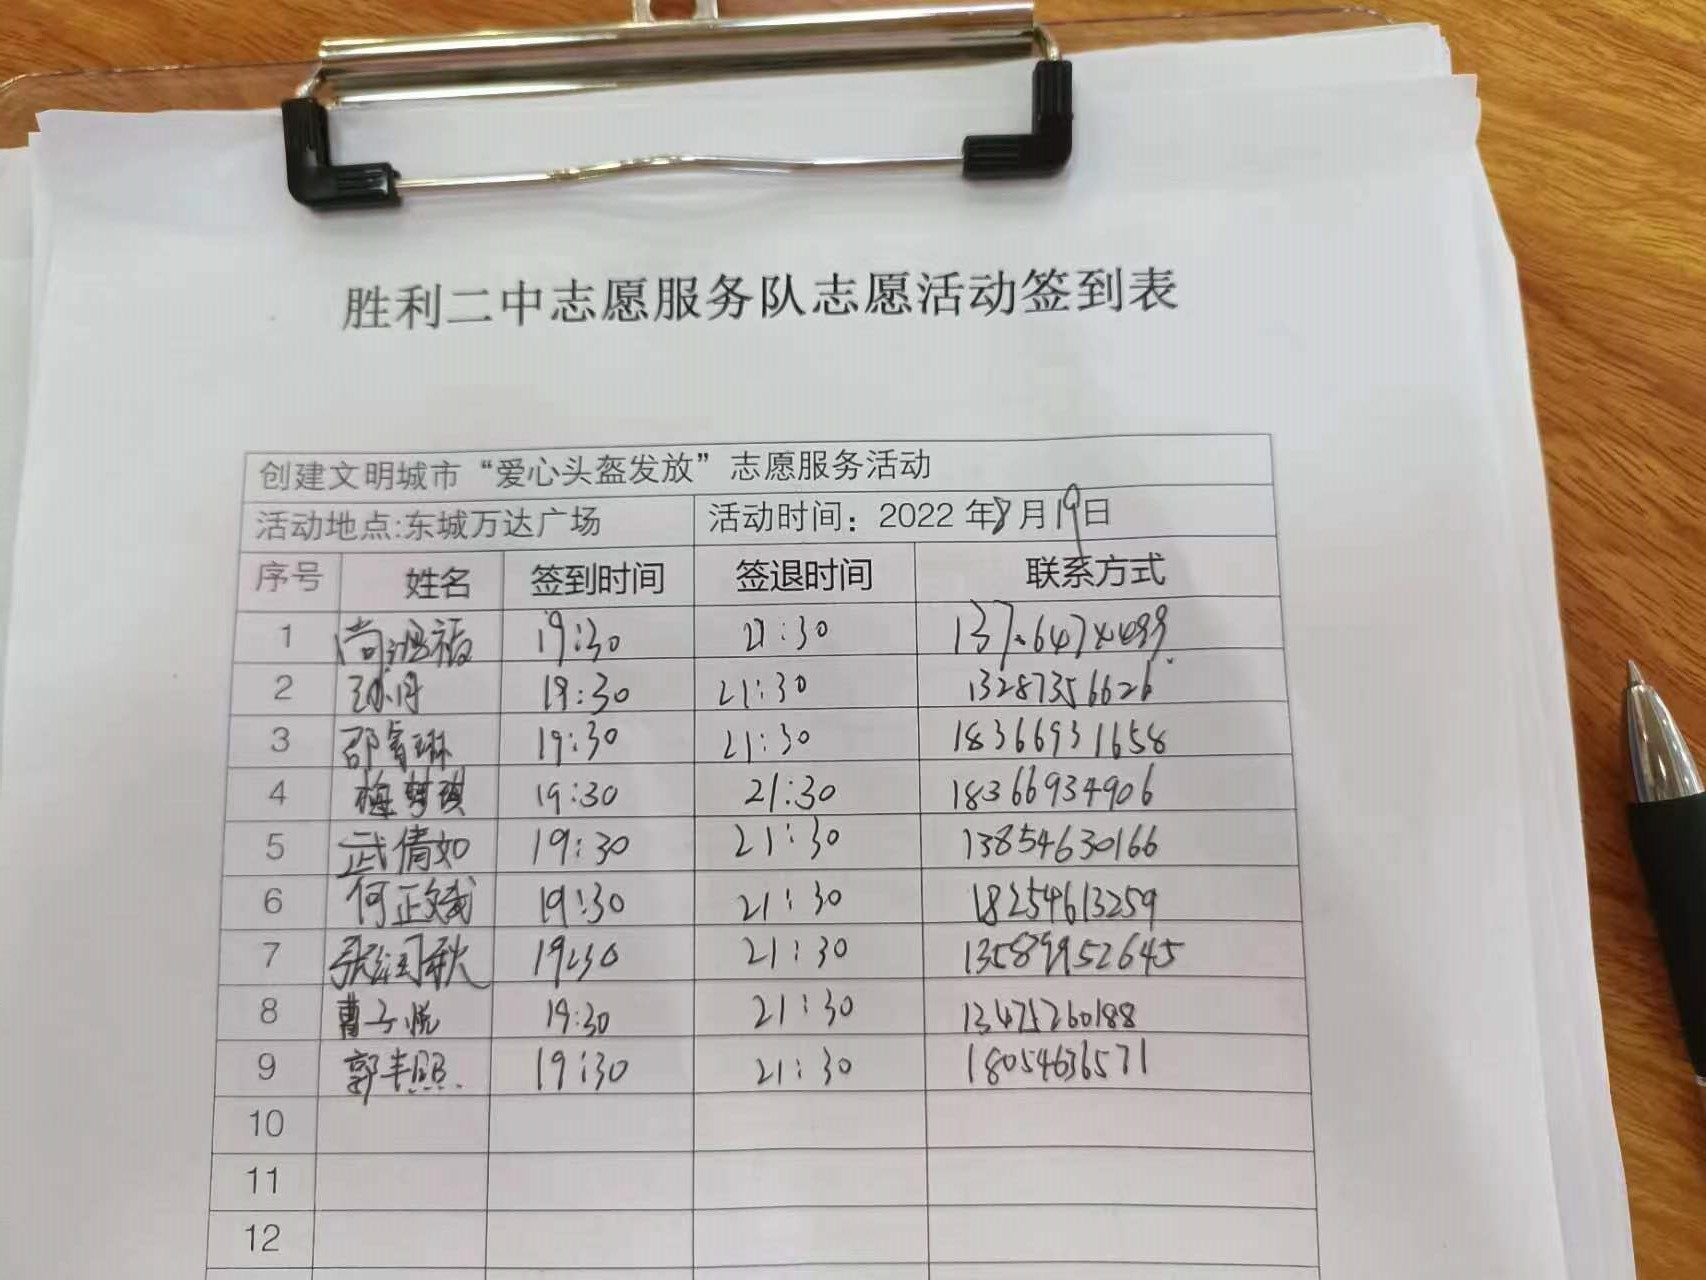 胜利二中志愿服务队志愿活动签到表
创建文明城市“爱心头盔发放”志愿服务活动
活动地点:东城万达广场 活动时间：2022 年8月19日
序号 姓名 签到时间 签退时间 联系方式
1 尚鸿福 19:30 21:30
2 孙丹 19:30 21:30 13287356626
3 邵睿琳 19:30 21:30 18366931658
4 梅梦琪 19:30 21:30 18366934906
5 武倩如 19:30 21:30 13854630166
6 何正斌 19:30 21:30 18254613259
7 张润秋 19:30 21:30 13589952645
8 曹子悦 19:30 21:30 13475260188
9 郭丰照 19:30 21:30 18054636571
10
11
12